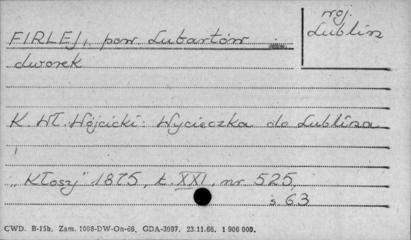 woj.
Lublin
FIRLEJ, pow. Lubartów
dworek
K. Wł. Wójcicki: Wycieczka do Lublina
"Kłosy" 1875, t. XXI, nr 525,
s. 63
CWD. B-15b. Zam. 1098-DW-On-66. GDA-3097. 23.11.66. 1 906 000.